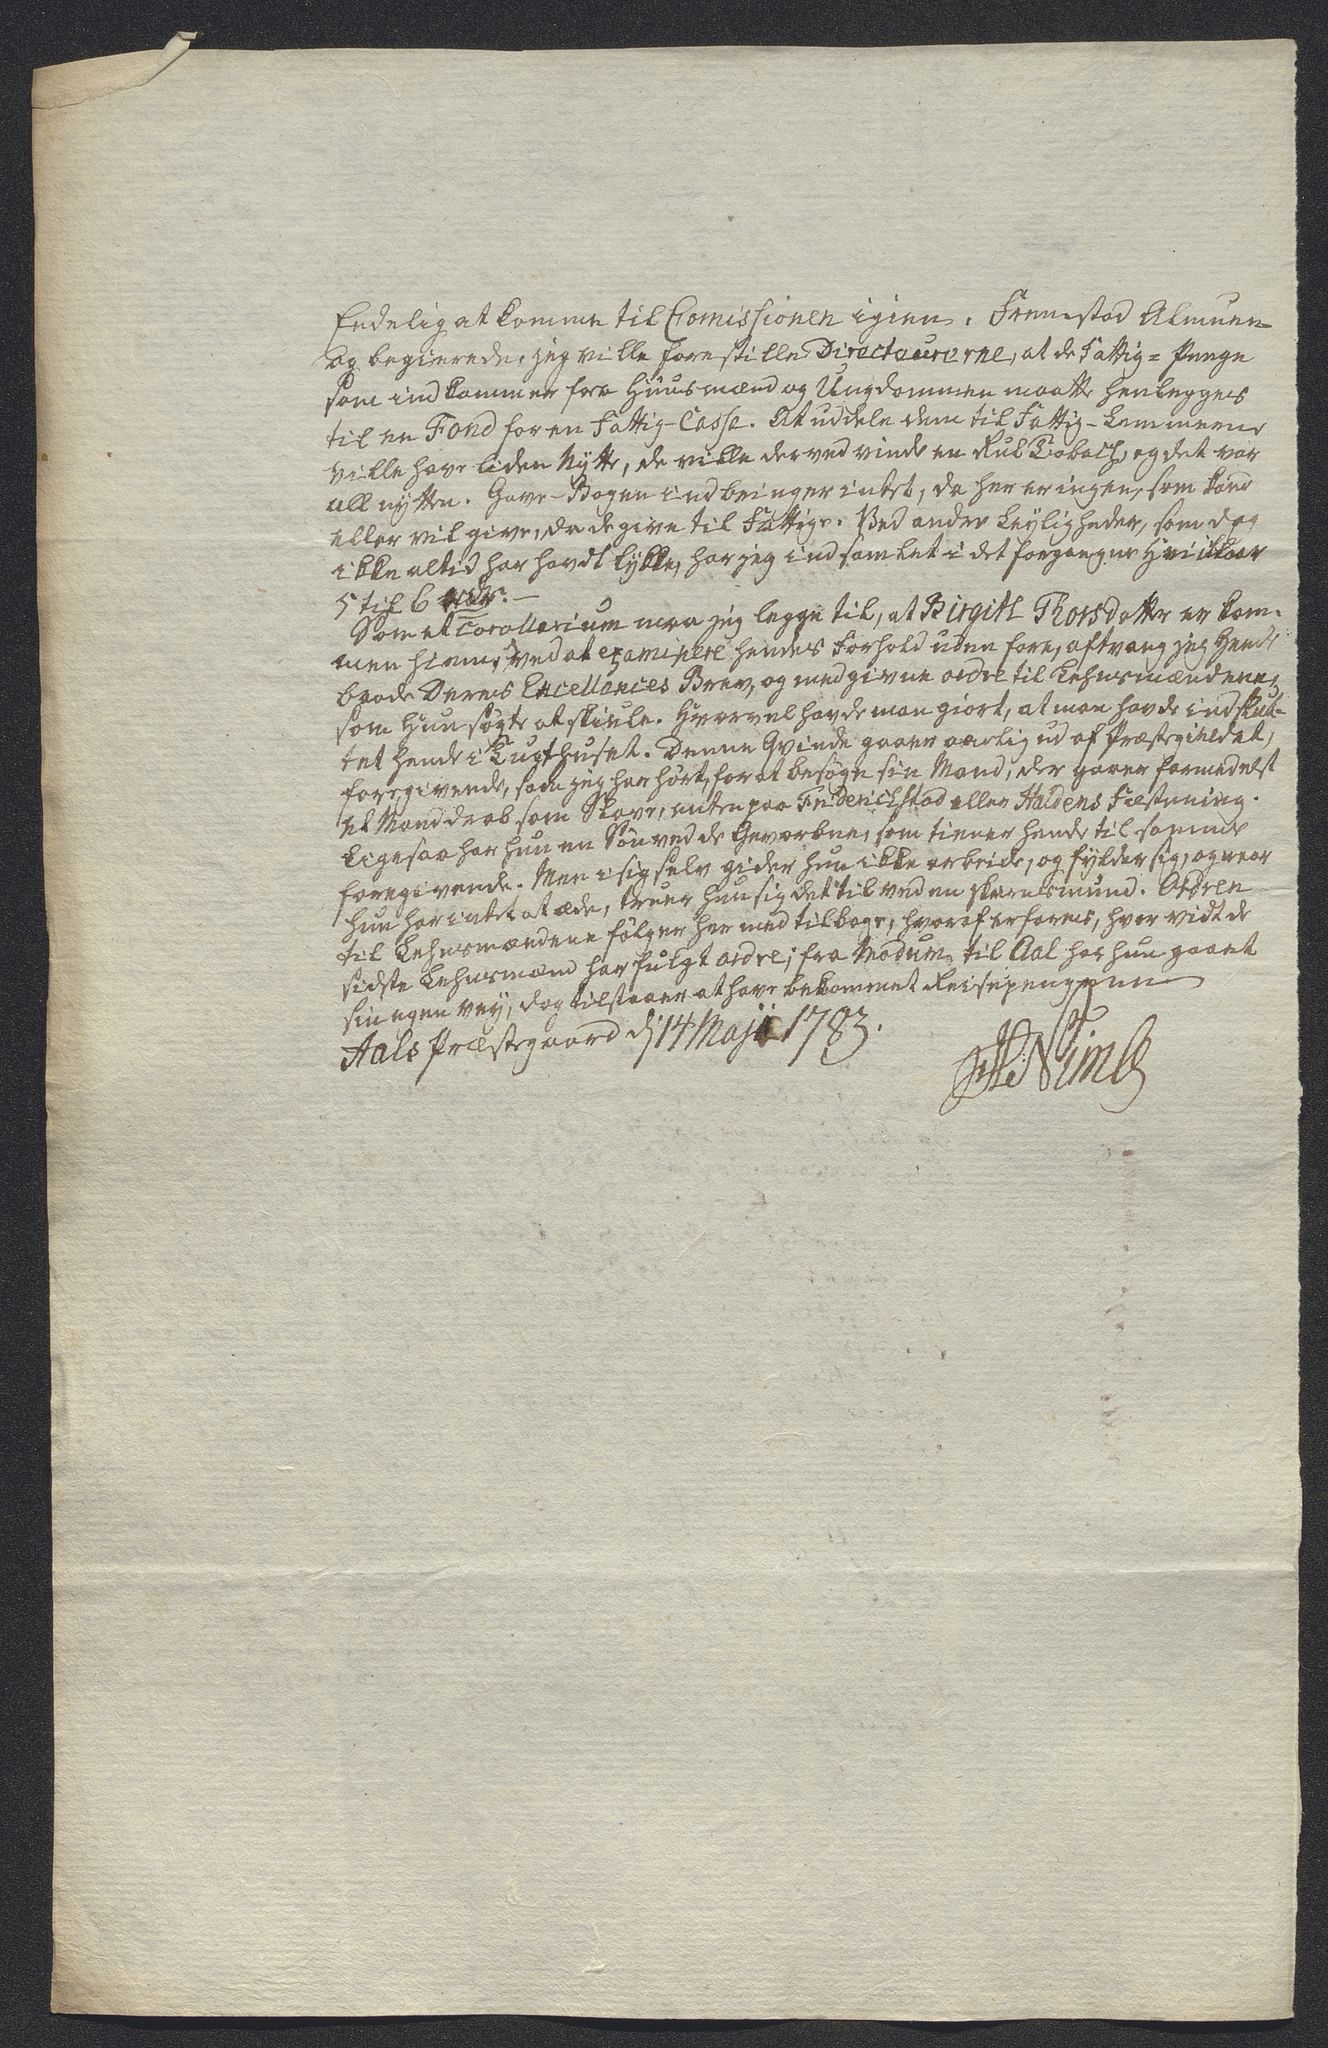 Endelig at komme til Comissionen igien. Fremstod Almuen
og begierede, jeg ville forestille Directeurerne, at de Fattig-Penge
som indkommer fra Huusmænd og Ungdommen maatte henlegges
til en Fond for en Fattig-Casse. At uddele dem til Fattig-Lemmerne
ville have liden Nytte, de ville derved vinde en Rul Tobach, og det var
all nytten. Gave-Bogen indbringer intet, da her er ingen, som kand
eller vil give, da de give til Fattige. Ved andre Leyligheder, som dog
ikke altid har havdt lykke, har jeg indsamlet i det forgangne
5 til 6 rdr. —
Som et Corollarium maa jeg legge til, at Birgitt Thorsdatter er kom-
men hiem, ved at examinere hendes Forhold uden fore, aftvang jeg Hende
baade Deres Excellences Brev, og medgivne ordre til Lehnsmændene,
som Hun søgte at skiule. Hvor vel havde man giort, at man havde indskut-
tet hende i Tugthuset. Denne Qvinde gaaer aarlig ud af Præstegieldet,
foregivende, som jeg har hørt, for at besøge sin Mand, der gaaer formedelst
et Manddrab som Slave, enten paa Friderichstad eller Haldens Fæstning.
Ligesaa har hun en Søn ved de Gevorbne, som tiener hende til samme
foregivende. Men i sig selv gider hun ikke arbeide, og fylder sig, og naar
hun har intet at æde, truer hun sig det til ved en skarnsmund. Ordren
til Lehnsmændene følger her med tilbage, hvoraf erfares, hvor vidt de
sidste Lehnsmænd har fulgt ordre; fra Modum til Aal har hun gaaet
sin egen vey, dog tilstaaer at have bekommet Reisepengene
Aals Præstegaard dj 14 Maji 1783.